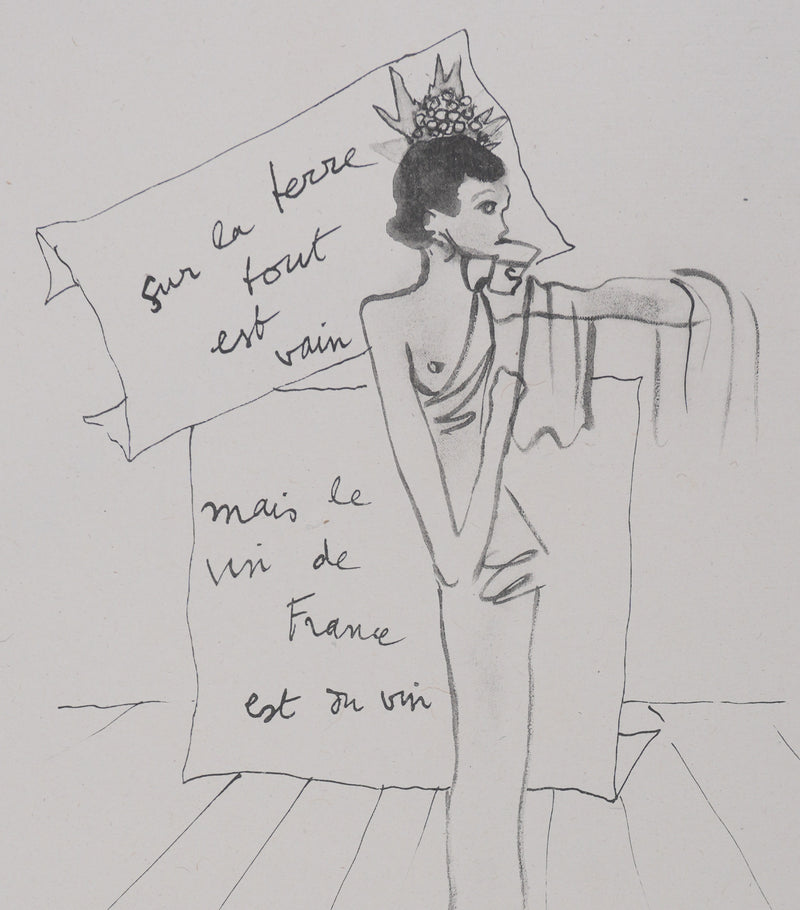 sur la terre
tout
est
vain
mais le
vin de
France
est du vin